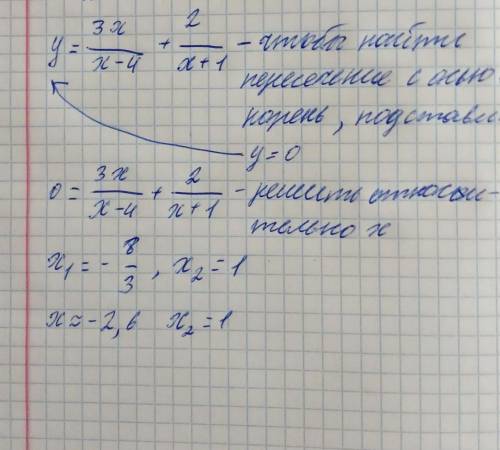 y = 3x/(x-4) + 2/(x+1) - чтобы найти
пересечение с осью
корень, подставл
y=0
0 = 3x/(x-4) + 2/(x+1) - решить относи-
тельно x
x₁ = - 8/3, x₂ = 1
x ≈ -2,6 x₂ = 1